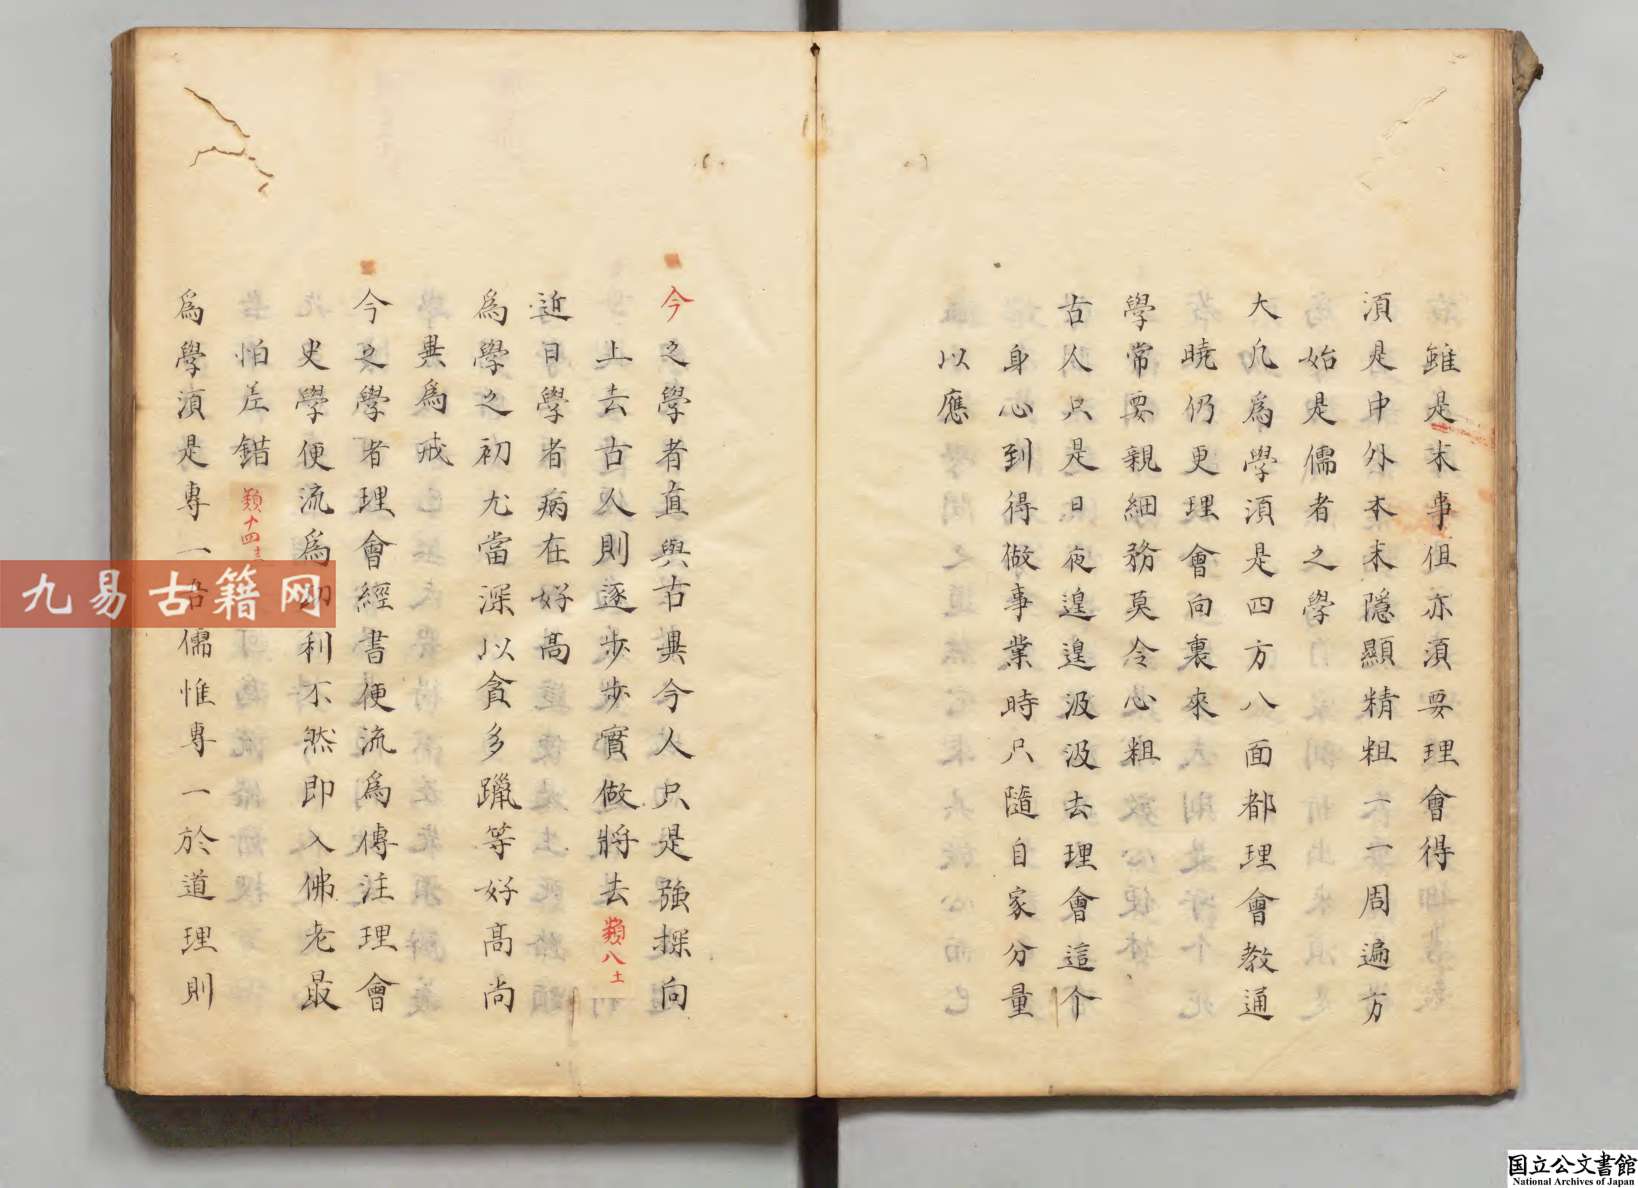 雖是末事但亦須要理會得
須是中外本末隱顯精粗一一周遍方
始是儒者之學
大凡爲學須是四方八面都理會教通
曉仍更理會向裏來
學常要親細務莫令心粗
古人只是日夜遑遑汲汲去理會這个
身心到得做事業時只隨自家分量
以應
今之學者直與古異今人只是強探向
上去古人則逐步步實做將去 類八 士
近日學者病在好高
爲學之初尤當深以貪多躐等好高尚
異爲戒
今之學者理會經書便流爲傳注理會
史學便流爲功利不然即入佛老最
怕差錯 類十四
爲學須是專一吾儒惟專一於道理則
九易古籍网
国立公文書館
National Archives of Japan